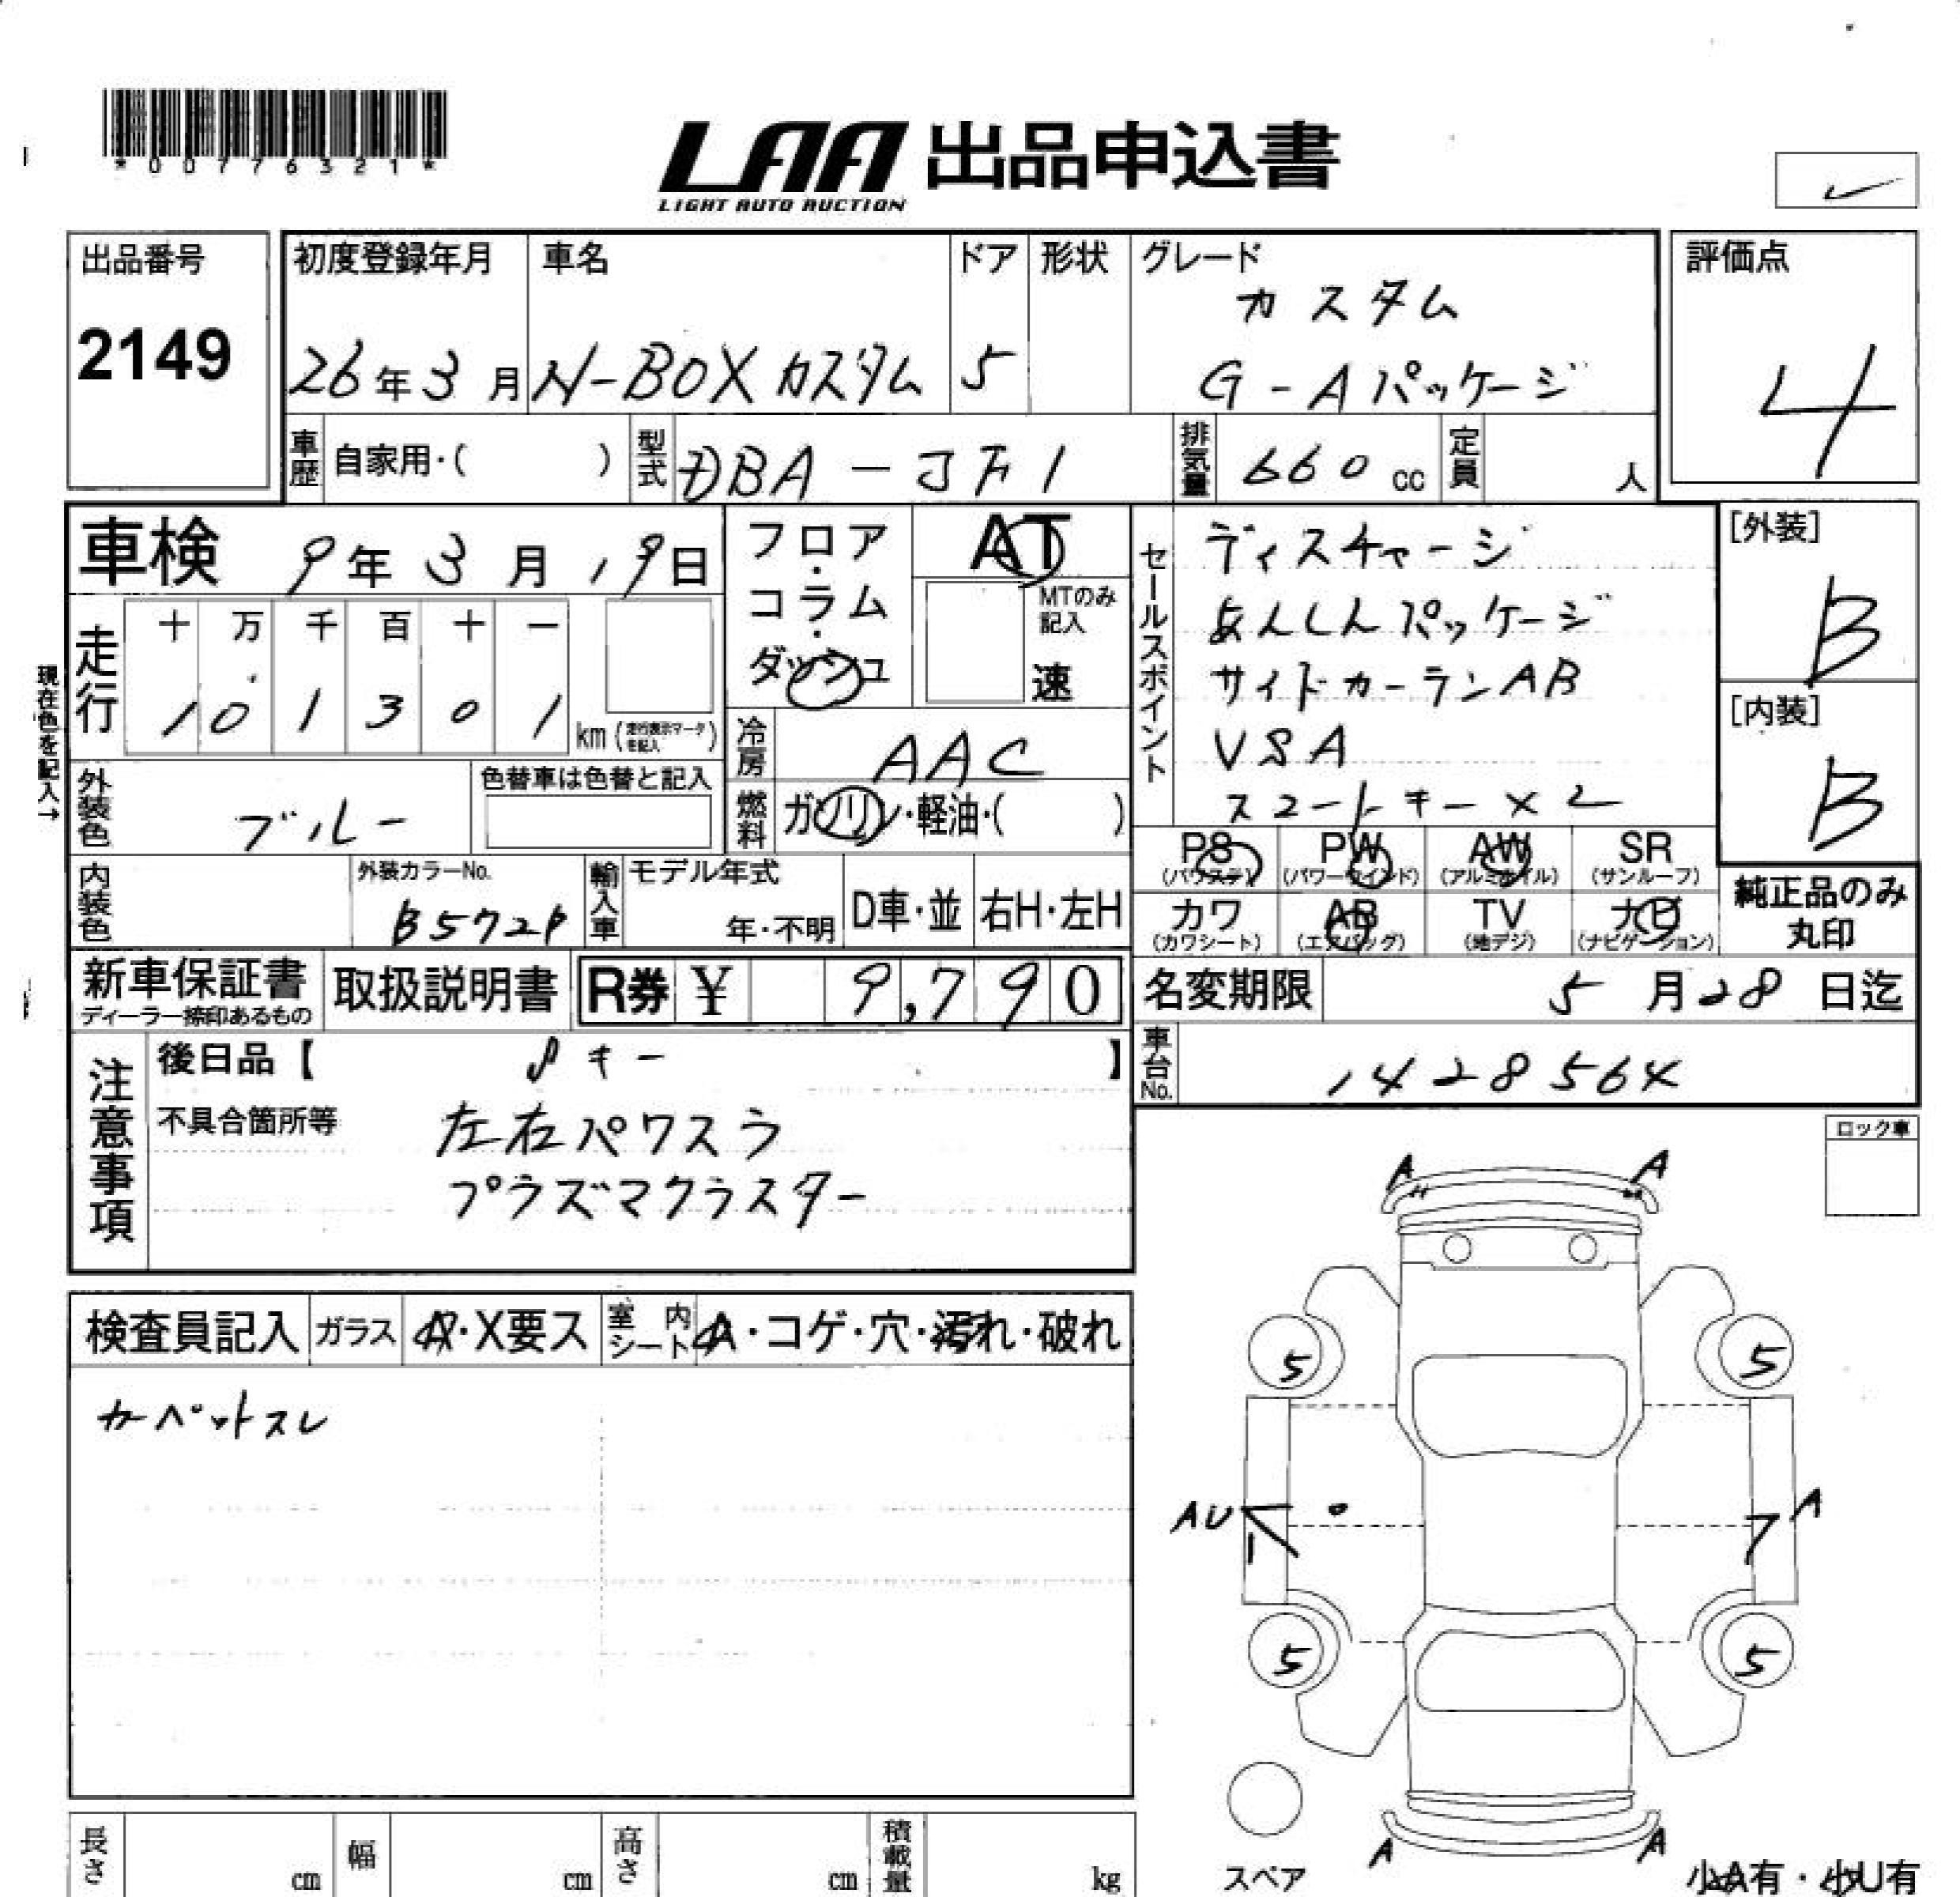 *00776321*
LAA 出品申込書
LIGHT AUTO AUCTION
出品番号
2149
初度登録年月
26年3月
車名
N-BOXカスタム
ドア
5
形状
グレード
カスタム
G-Aパッケージ
評価点
4
車歴 自家用・( )
型式 DBA-JF1
排気量 660cc
定員 人
車検 9年3月19日
フロア・コラム・ダッシュ
AT
MTのみ記入
速
セールスポイント
ディスチャージ
あんしんパッケージ
サイドカーテンAB
VSA
スマートキー×2
[外装]
B
[内装]
B
現在色を記入→
走行
十 万 千 百 十 一
1 0 1 3 0 1 km (走行表示マークを記入)
冷房 AAC
燃料 ガソリン・軽油・( )
外装色 ブルー
色替車は色替と記入
内装色
外装カラーNo.
B572P
輸入車
モデル年式
年・不明
D車・並
右H・左H
PS (パワステ)
PW (パワーウインド)
AW (アルミホイル)
SR (サンルーフ)
カワ (カワシート)
AB (エアバッグ)
TV (地デジ)
ナビ (ナビゲーション)
純正品のみ
丸印
新車保証書
ディーラー捺印あるもの
取扱説明書
R券 ¥ 9,790
名変期限 5月28日迄
車台No. 1428564
注意事項
後日品【 キー 】
不具合箇所等
左右パワスラ
プラズマクラスター
ロック車
検査員記入
ガラス A・X要ス
室内シート A・コゲ・穴・汚れ・破れ
カーペットスレ
A A
5 5
AU A
5 5
A A
スペア
小A有・小U有
長さ cm
幅 cm
高さ cm
積載量 kg